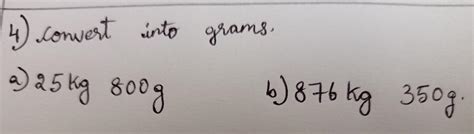 4) convert into grams.
a) 25kg 800g b) 876 kg 350g.